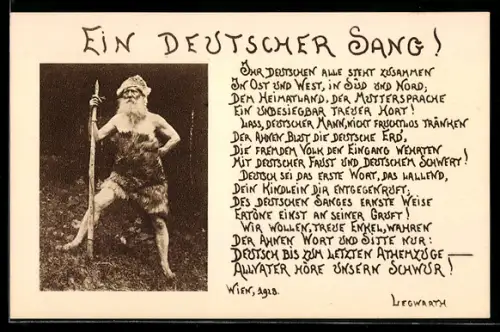 EIN DEUTSCHER SANG!
IHR DEUTSCHEN ALLE STEHT ZUSAMMEN
IN OST UND WEST, IN SÜD UND NORD;
DEM HEIMATLAND, DER MUTTERSPRACHE
EIN UNBESIEGBAR TREUER HORT!
LASS, DEUTSCHER MANN, NICHT FRUCHTLOS TRÄNKEN
DER AHNEN BLUT DIE DEUTSCHE ERD,
DIE FREMDEM VOLK DEN EINGANG WEHRTEN
MIT DEUTSCHER FAUST UND DEUTSCHEM SCHWERT!
DEUTSCH SEI DAS ERSTE WORT, DAS LALLEND,
DEIN KINDLEIN DIR ENTGEGENRUFT;
DES DEUTSCHEN SANGES ERNSTE WEISE
ERTÖNE EINST AN SEINER GRUFT!
WIR WOLLEN, TREUE ENKEL, WAHREN
DER AHNEN WORT UND SITTE NUR:
DEUTSCH BIS ZUM LETZTEN ATHEMZUGE —
ALLVATER HÖRE UNSERN SCHWUR!
WIEN, 1928.
LEGWARTH